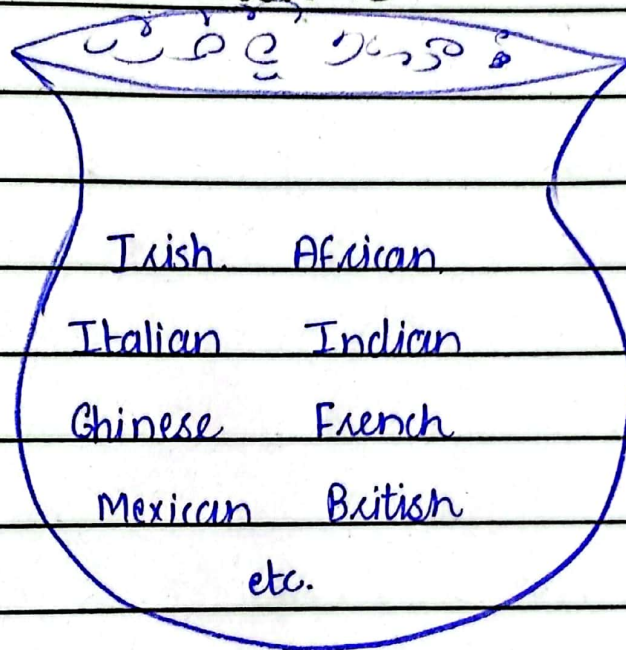 Irish. African
Italian Indian
Chinese French
Mexican British
etc.